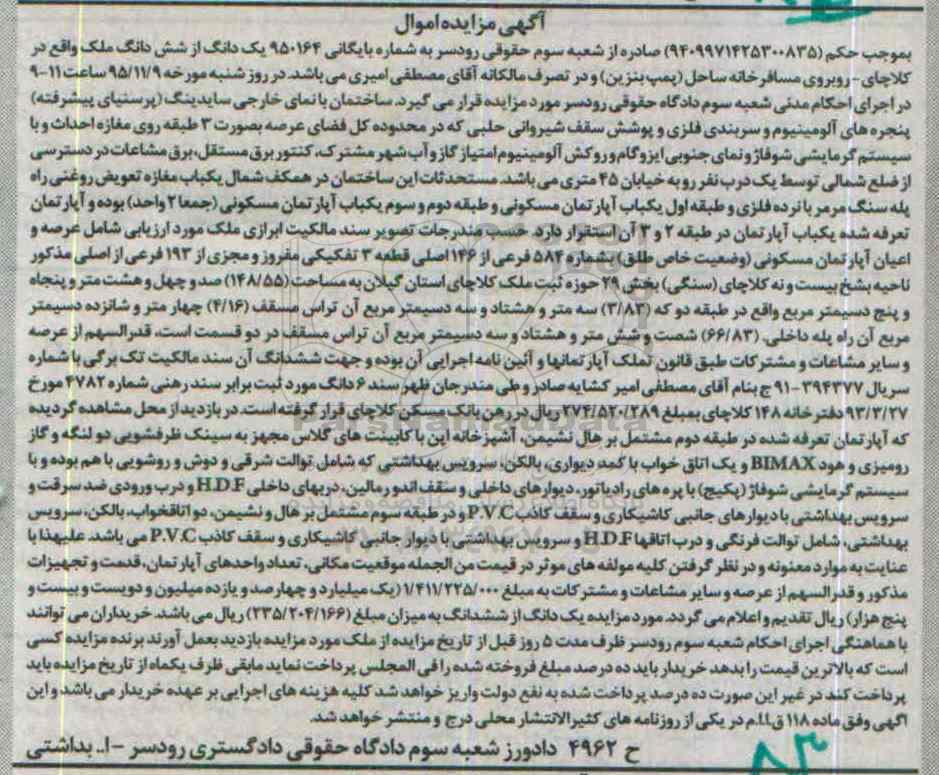 آگهی مزایده اموال
بموجب حکم (۹۴۰۹۹۷۱۴۲۵۳۰۰۸۳۵) صادره از شعبه سوم حقوقی رودسر به شماره بایگانی ۹۵۰۱۶۴ یک دانگ از شش دانگ ملک واقع در
کلاچای - روبروی مسافرخانه ساحل (پمپ بنزین) و در تصرف مالکانه آقای مصطفی امیری می باشد. در روز شنبه مورخه ۹۵/۱۱/۹ ساعت ۱۱-۹
در اجرای احکام مدنی شعبه سوم دادگاه حقوقی رودسر مورد مزایده قرار می گیرد. ساختمان با نمای خارجی سایدینگ (پرسنیای پیشرفته)
پنجره های آلومینیوم و سربندی فلزی و پوشش سقف شیروانی حلبی که در محدوده کل فضای عرصه بصورت ۳ طبقه روی مغازه احداث و با
سیستم گرمایشی شوفاژ و نمای جنوبی ایزوگام و روکش آلومینیوم امتیاز گاز و آب شهر مشترک، کنتور برق مستقل، برق مشاعات در دسترسی
از ضلع شمالی توسط یک درب نفر رو به خیابان ۴۵ متری می باشد. مستحدثات این ساختمان در همکف شمال یکباب مغازه تعویض روغنی راه
پله سنگ مرمر با نرده فلزی و طبقه اول یکباب آپارتمان مسکونی و طبقه دوم و سوم یکباب آپارتمان مسکونی (جمعا ۲ واحد) بوده و آپارتمان
تعرفه شده یکباب آپارتمان در طبقه ۲ و ۳ آن استقرار دارد. حسب مندرجات تصویر سند مالکیت ابرازی ملک مورد ارزیابی شامل عرصه و
اعیان آپارتمان مسکونی (وضعیت خاص طلق) بشماره ۵۸۴ فرعی از ۱۴۶ اصلی قطعه ۳ تفکیکی مفروز و مجزی از ۱۹۳ فرعی از اصلی مذکور
ناحیه بشخ بیست و نه کلاچای (سنگی) بخش ۲۹ حوزه ثبت ملک کلاچای استان گیلان به مساحت (۱۴۸/۵۵) صد و چهل و هشت متر و پنجاه
و پنج دسیمتر مربع واقع در طبقه دو که (۳/۸۳) سه متر و هشتاد و سه دسیمتر مربع آن تراس مسقف (۴/۱۶) چهار متر و شانزده دسیمتر
مربع آن راه پله داخلی. (۶۶/۸۳) شصت و شش متر و هشتاد و سه دسیمتر مربع آن تراس مسقف در دو قسمت است، قدرالسهم از عرصه
و سایر مشاعات و مشترکات طبق قانون تملک آپارتمانها و آئین نامه اجرایی آن بوده و جهت ششدانگ آن سند مالکیت تک برگی با شماره
سریال ۳۹۴۳۷۷-۹۱ ج بنام آقای مصطفی امیر کشایه صادر و طی مندرجان ظهر سند ۶ دانگ مورد ثبت برابر سند رهنی شماره ۴۷۸۲ مورخ
۹۳/۳/۲۷ دفترخانه ۱۴۸ کلاچای بمبلغ ۲۷۴/۵۲۰/۲۸۹ ریال در رهن بانک مسکن کلاچای قرار گرفته است. در بازدید از محل مشاهده گردیده
که آپارتمان تعرفه شده در طبقه دوم مشتمل بر هال نشیمن، آشپزخانه اپن با کابینت های گلاس مجهز به سینک ظرفشویی دو لنگه و گاز
رومیزی و هود BIMAX و یک اتاق خواب با کمد دیواری، بالکن، سرویس بهداشتی که شامل توالت شرقی و دوش و روشویی با هم بوده و با
سیستم گرمایشی شوفاژ (پکیج) با پره های رادیاتور، دیوارهای داخلی و سقف اندور مالین، دربهای داخلی H.D.F و درب ورودی ضد سرقت و
سرویس بهداشتی با دیوارهای جانبی کاشیکاری و سقف کاذب P.V.C و در طبقه سوم مشتمل بر هال و نشیمن، دو اتاقخواب، بالکن، سرویس
بهداشتی، شامل توالت فرنگی و درب اتاقها H.D.F و سرویس بهداشتی با دیوار جانبی کاشیکاری و سقف کاذب P.V.C می باشد. علیهذا با
عنایت به موارد معنونه و در نظر گرفتن کلیه مولفه های موثر در قیمت من الجمله موقعیت مکانی، تعداد واحدهای آپارتمان، قدمت و تجهیزات
مذکور و قدرالسهم از عرصه و سایر مشاعات و مشترکات به مبلغ ۱/۴۱۱/۲۲۵/۰۰۰ (یک میلیارد و چهارصد و یازده میلیون و دویست و بیست و
پنج هزار) ریال تقدیم و اعلام می گردد. مورد مزایده یک دانگ از ششدانگ به میزان مبلغ (۲۳۵/۲۰۴/۱۶۶) ریال می باشد. خریداران می توانند
با هماهنگی اجرای احکام شعبه سوم رودسر ظرف مدت ۵ روز قبل از تاریخ مزایده از ملک مورد مزایده بازدید بعمل آورند برنده مزایده کسی
است که بالاترین قیمت را بدهد خریدار باید ده درصد مبلغ فروخته شده را فی المجلس پرداخت نماید مابقی ظرف یکماه از تاریخ مزایده باید
پرداخت کند در غیر این صورت ده درصد پرداخت شده به نفع دولت واریز خواهد شد کلیه هزینه های اجرایی بر عهده خریدار می باشد و این
آگهی وفق ماده ۱۱۸ ق.ا.ا.م در یکی از روزنامه های کثیرالانتشار محلی درج و منتشر خواهد شد.
ح ۴۹۶۲ دادورز شعبه سوم دادگاه حقوقی دادگستری رودسر -ا.. بداشتی